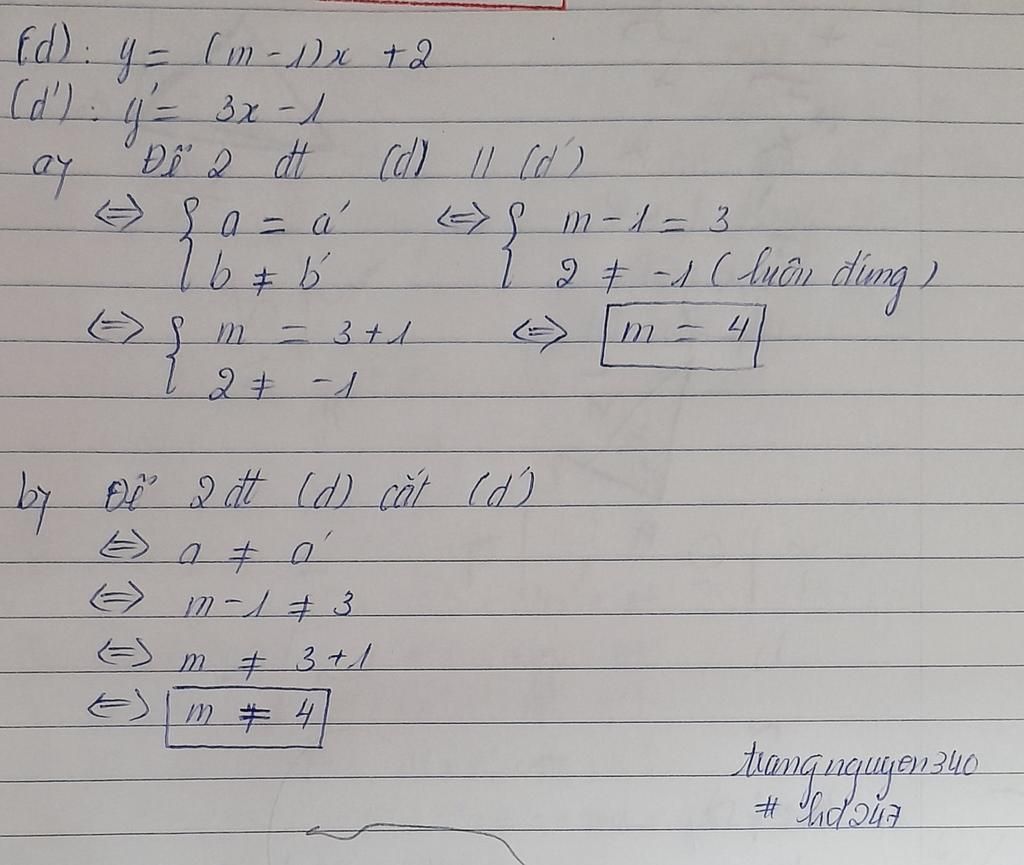 (d): y = (m-1)x +2
(d'): y' = 3x - 1
a, Để 2 đt (d) // (d')
<=> { a = a' <=> { m - 1 = 3
b ≠ b' 2 ≠ -1 (luôn đúng)
<=> { m = 3+1 <=> m = 4
2 ≠ -1
b, Để 2 đt (d) cắt (d')
<=> a ≠ a'
<=> m-1 ≠ 3
<=> m ≠ 3+1
<=> m ≠ 4
trangnguyen340
# hd247